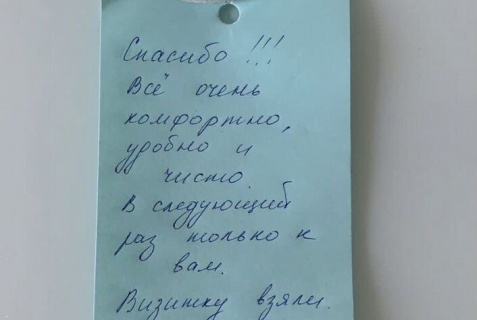 Спасибо !!!
Всё очень
комфортно,
удобно и
чисто.
В следующий
раз только к
вам.
Визитку взяли.